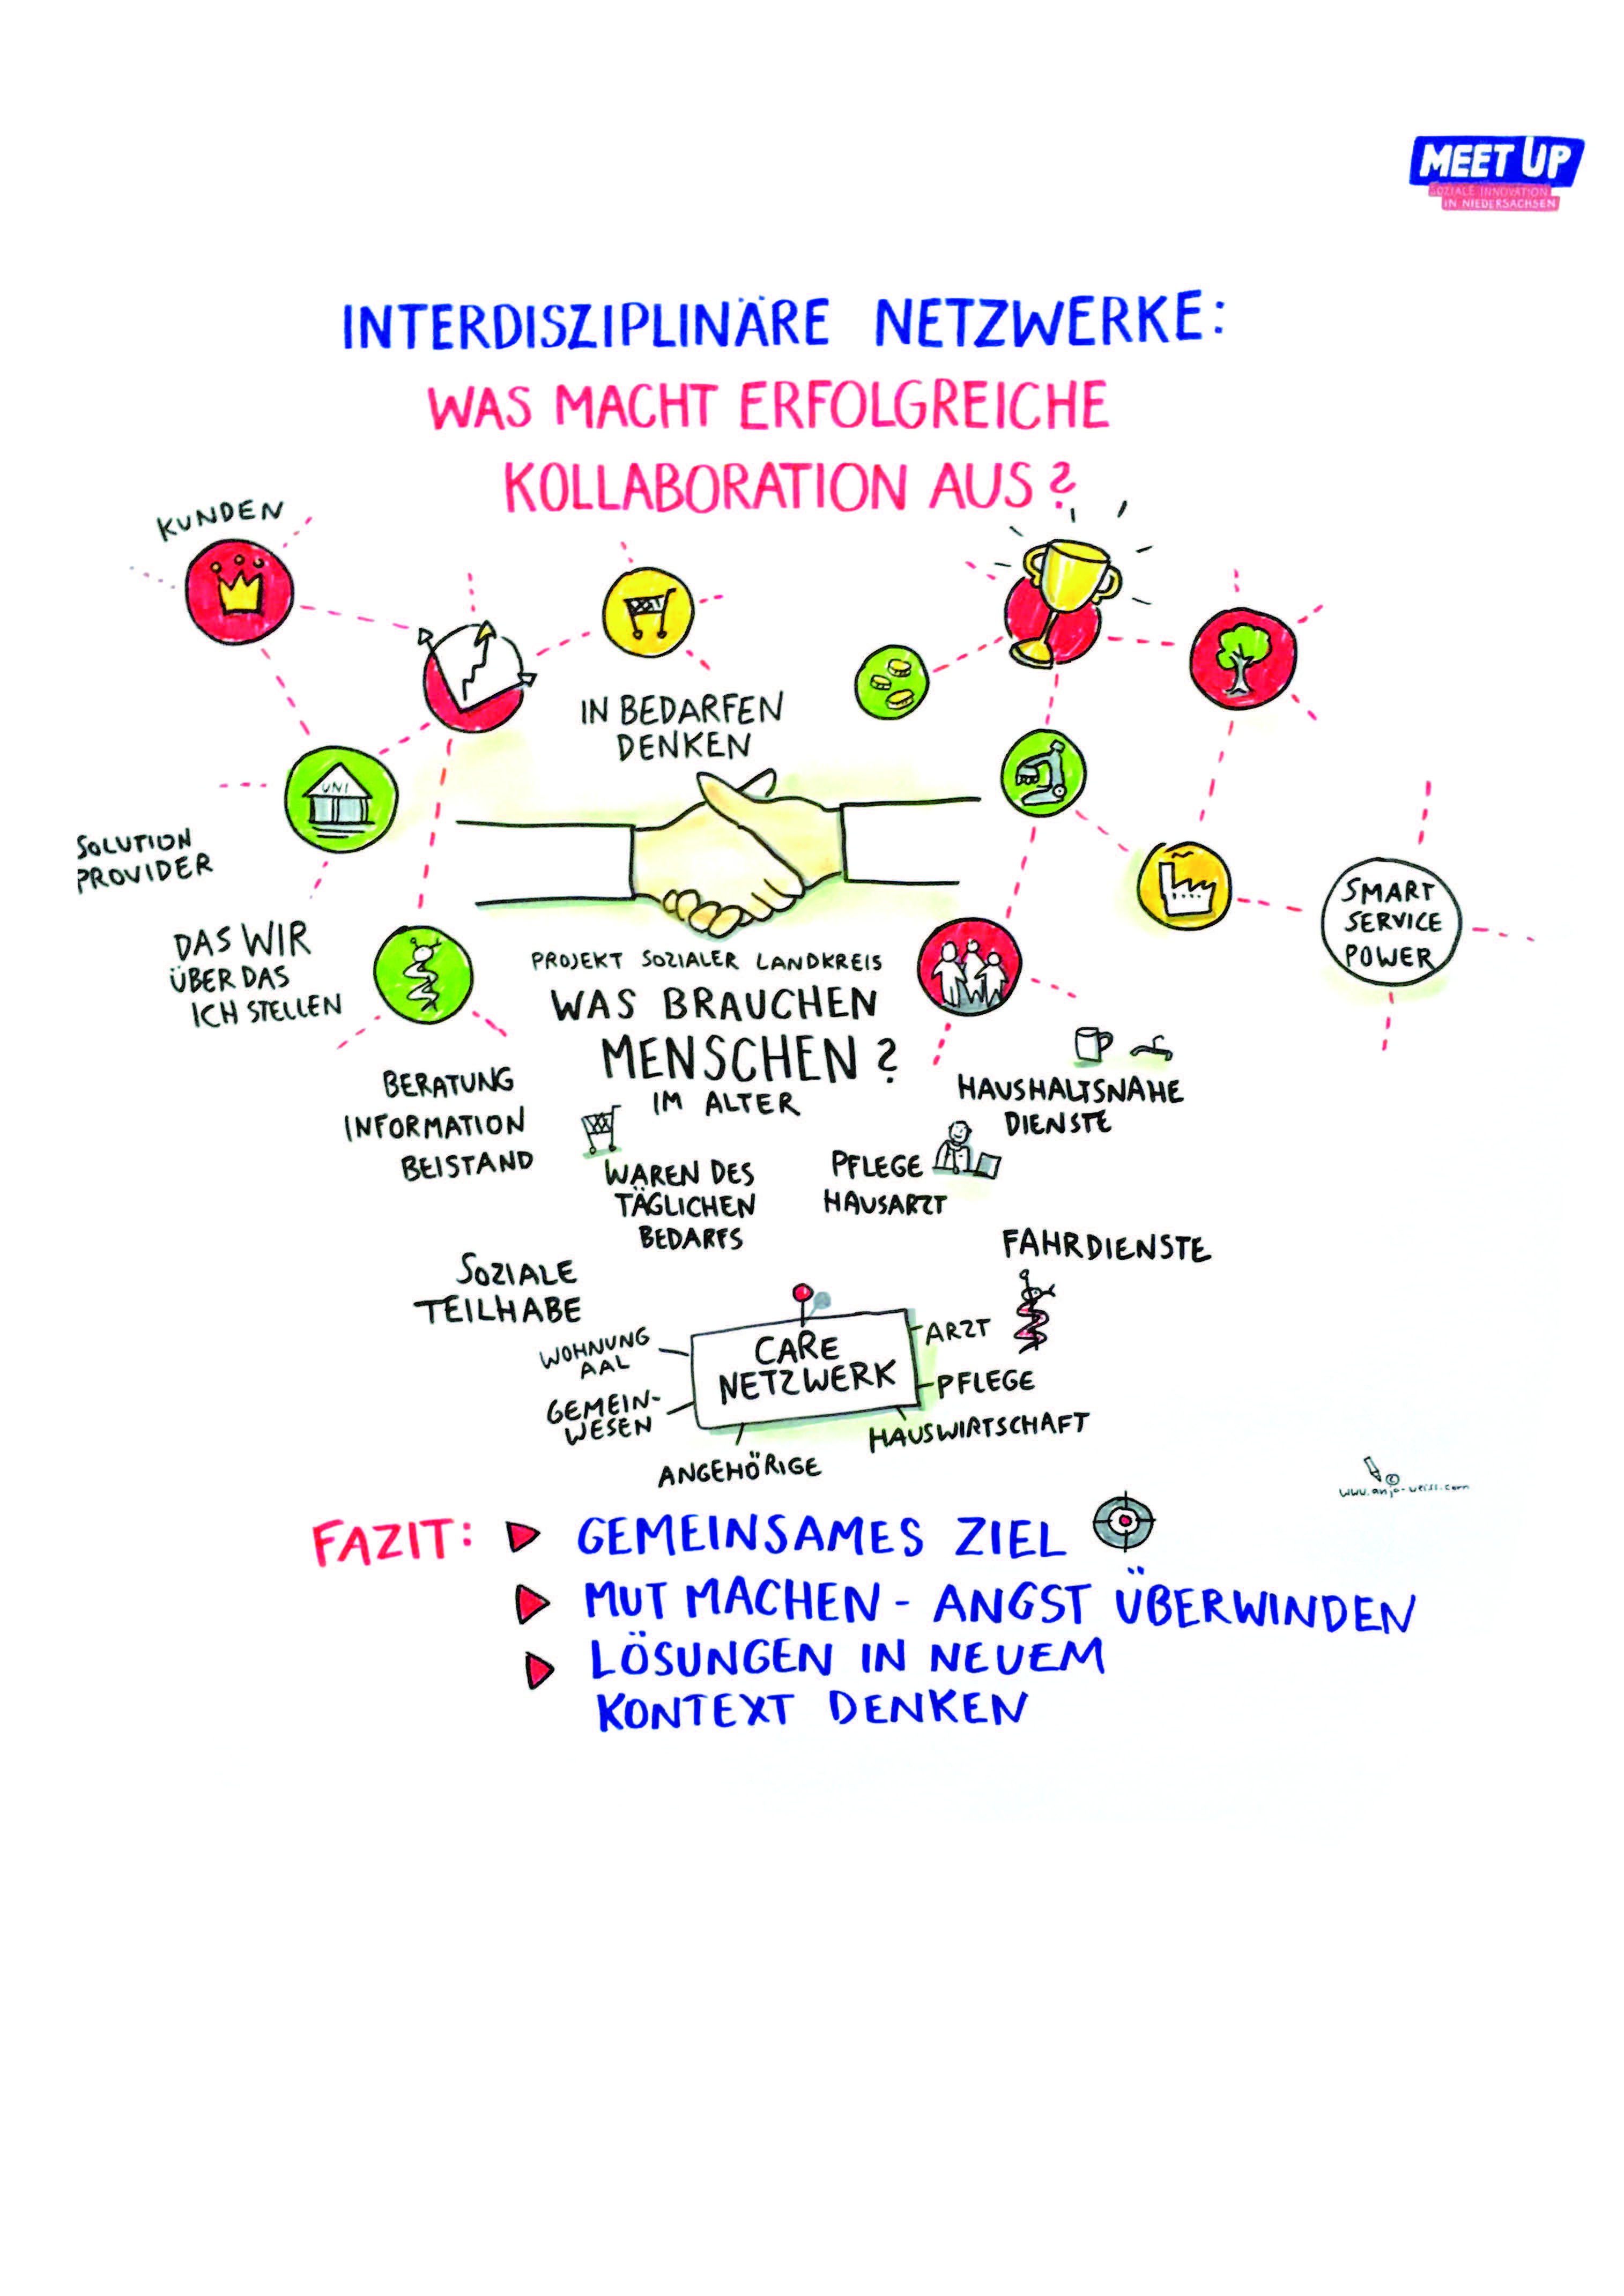 MEET UP
SOZIALE INNOVATION
IN NIEDERSACHSEN
INTERDISZIPLINÄRE NETZWERKE:
WAS MACHT ERFOLGREICHE
KOLLABORATION AUS?
KUNDEN
IN BEDARFEN
DENKEN
UNI
SOLUTION
PROVIDER
DAS WIR
ÜBER DAS
ICH STELLEN
SMART
SERVICE
POWER
PROJEKT SOZIALER LANDKREIS
WAS BRAUCHEN
MENSCHEN?
IM ALTER
BERATUNG
INFORMATION
BEISTAND
WAREN DES
TÄGLICHEN
BEDARFS
PFLEGE
HAUSARZT
HAUSHALTSNAHE
DIENSTE
FAHRDIENSTE
SOZIALE
TEILHABE
CARE
NETZWERK
WOHNUNG
AAL
GEMEIN-
WESEN
ANGEHÖRIGE
ARZT
PFLEGE
HAUSWIRTSCHAFT
©
FAZIT:
GEMEINSAMES ZIEL
MUT MACHEN - ANGST ÜBERWINDEN
LÖSUNGEN IN NEUEM
KONTEXT DENKEN